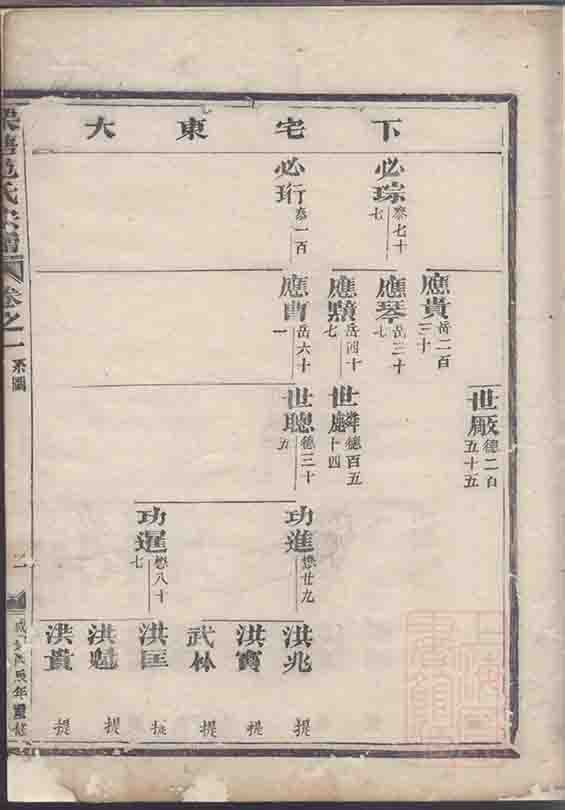 下宅東大
必琮 泰七十七
必珩 泰一百
應貴 岳二百三十
應琴 岳三十七
應顯 岳四十七
應曹 岳六十一
世廒 德二百五十五
世麟 德百五十四
世聰 德三十五
功進 懋廿九
功暹 懋八十七
洪兆 提
洪寶 提
武林 提
洪匡 提
洪魁 提
洪貴 提
氏宗譜 卷之一 系圖
年重修